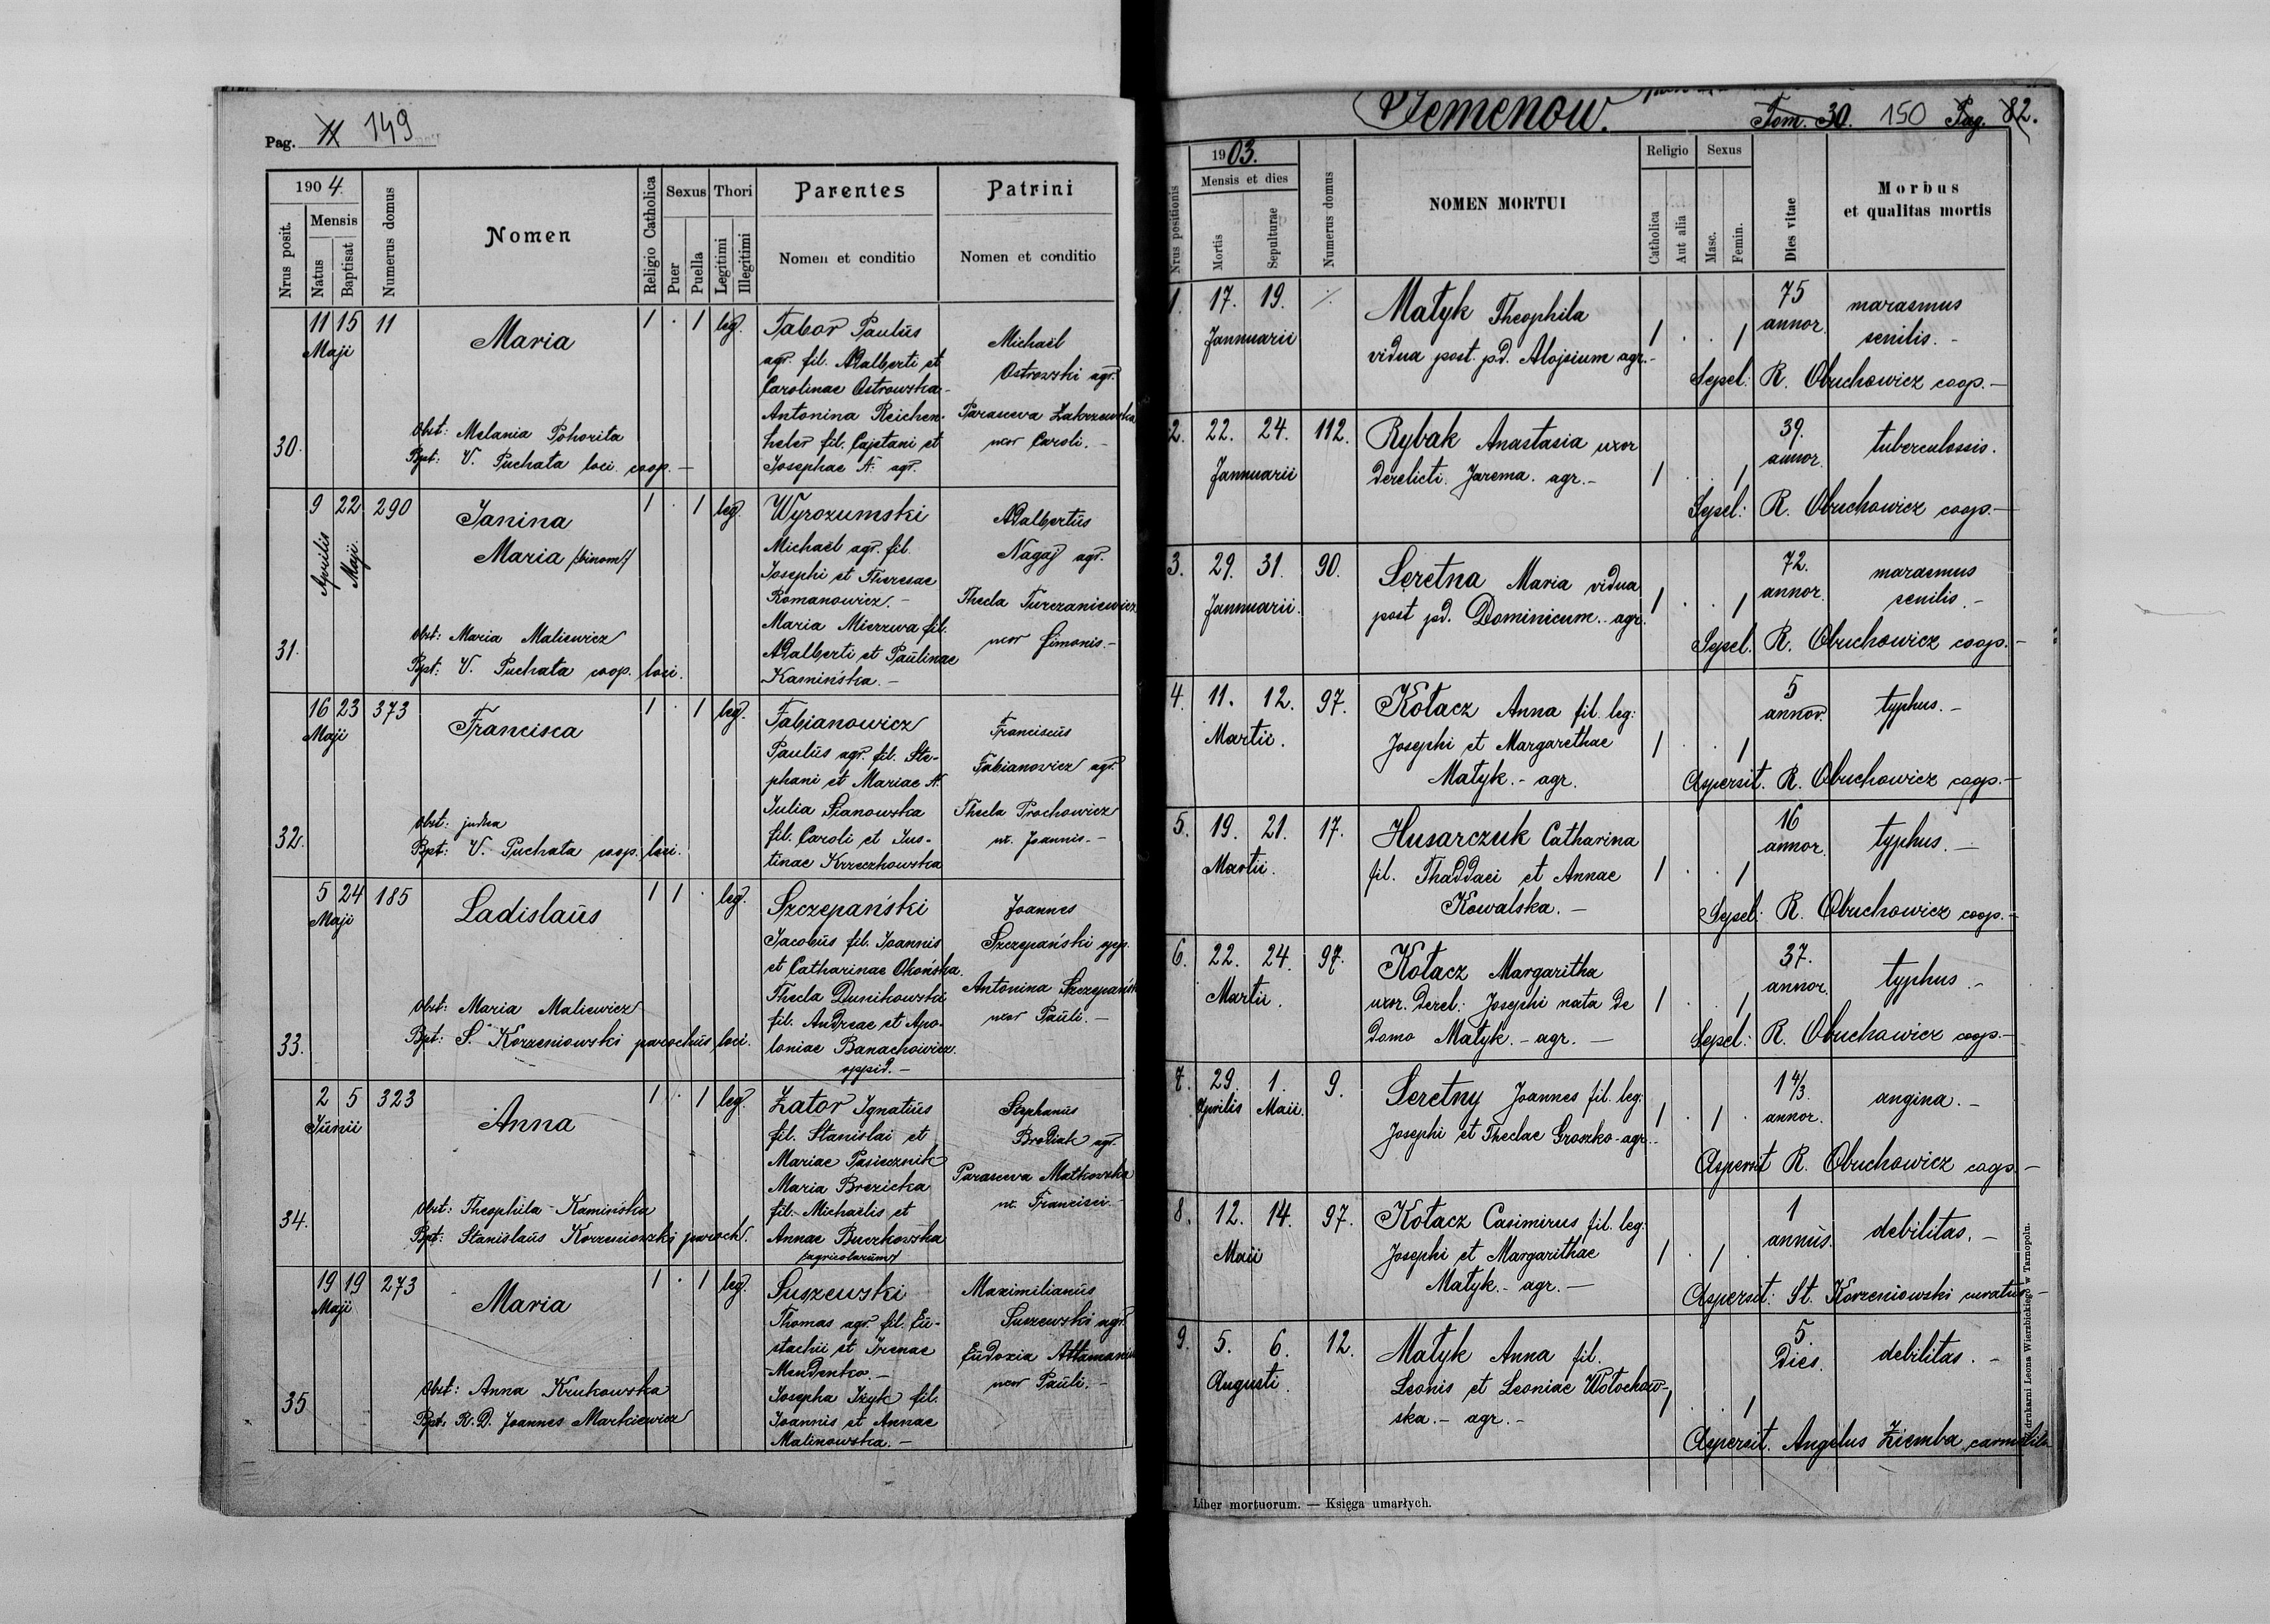 Pag. 11 149
1904
Nrus posit.
Mensis
Natus
Baptisat
Numerus domus
Nomen
Religio Catholica
Sexus
Puer
Puella
Thori
Legitimi
Illegitimi
Parentes
Nomen et conditio
Patrini
Nomen et conditio
30.
11 15 11
Maji
Maria
1 . 1 leg.
Tabor Paulus
agr. fil. Adalberti et
Carolinae Ostrowska -
Antonina Reichen-
heler fil. Cajetani et
Josephae N. agr.
Michaël
Ostrowski agr.
Parasceva Zakrzewska
uxor Caroli. -
Obst: Melania Pohorita
Bpt: V. Puchata loci coop. -
31.
9 22 290
Aprilis Maji.
Janina
Maria /binom/
1 . 1 leg.
Wyrozumski
Michaël agr. fil.
Josephi et Theresae
Romanowicz. -
Maria Mierzwa fil.
Adalberti et Paulinae
Kamińska. -
Adalbertus
Nagaj agr.
Thecla Turczaniewicz
uxor Simonis. -
Obst: Maria Maliewicz
Bpt: V. Puchata coop. loci.
32.
16 23 373
Maji
Francisca
1 . 1 leg.
Fabianowicz
Paulus agr. fil. Ste-
phani et Mariae N.
Julia Sianowska
fil. Caroli et Jus-
tinae Krzeczkowska
Franciscus
Fabianowicz agr.
Thecla Prochowicz
ux. Joannis. -
Obst: judea
Bpt: V. Puchata coop. loci.
33.
5 24 185
Maji
Ladislaus
1 1 . leg.
Szczepański
Jacobus fil. Joannis
et Catharinae Okońska.
Thecla Dunikowski
fil. Andreae et Apo-
loniae Banachowicz.
oppid. -
Joannes
Szczepański opp.
Antonina Szczepańsk
uxor Pauli. -
Obst: Maria Maliewicz
Bpt: S. Korzeniowski parochus loci.
34.
2 5 323
Junii
Anna
1 . 1 leg.
Zator Ignatius
fil. Stanislai et
Mariae Pasiecznik
Maria Brezicka
fil. Michaëlis et
Annae Buczkowska
/agricolarum/
Stephanus
Brodiak agr.
Parasceva Matkowska
ux. Francisci. -
Obst: Theophila Kamińska
Bpt: Stanislaus Korzeniowski paroch.
35
19 19 273
Maji
Maria
1 . 1 leg.
Suszewski
Thomas agr. fil. Eu-
stachii et Irenae
Mendenko. -
Josepha Iżyk fil.
Joannis et Annae
Malinowska. -
Maximilianus
Suszewski agr.
Eudoxia Attamaniu
uxor Pauli. -
Obst: Anna Krukowska
Bpt: R.D. Joannes Markiewicz
Semenow.
Tom. 30. 150 Pag. 82.
Nrus positionis
1903.
Mensis et dies
Mortis
Sepulturae
Numerus domus
NOMEN MORTUI
Religio
Catholica
Aut alia
Sexus
Masc.
Femin.
Dies vitae
Morbus
et qualitas mortis
1. 17. 19. ./.
Jannuarii
Matyk Theophila
vidua post. pd. Alojsium agr. -
1 . . 1
75
annor.
marasmus
senilis. -
Sepel: R. Obuchowicz coop. -
2. 22. 24. 112.
Jannuarii
Rybak Anastasia uxor
derelicti Jarema. agr. -
1 . . 1
39.
annor.
tuberculossis.
Sepel: R. Obuchowicz coop. -
3. 29. 31. 90.
Jannuarii.
Seretna Maria vidua
post pd. Dominicum. agr.
1 . . 1
72.
annor.
marasmus
senilis. -
Sepel. R. Obuchowicz coop. -
4. 11. 12. 97.
Martii.
Kołacz Anna fil. leg:
Josephi et Margarethae
Matyk. - agr.
1 . . 1
5
annor.
typhus. -
Aspersit. R. Obuchowicz coop. -
5. 19. 21. 17.
Martii.
Husarczuk Catharina
fil. Thaddaei et Annae
Kowalska. -
1 . . 1
16
annor.
typhus. -
Sepel: R. Obuchowicz coop. -
6. 22. 24. 97.
Martii.
Kołacz Margaritha
uxor. derel: Josephi nata de
domo Matyk. - agr. -
1 . . 1
37.
annor.
typhus. -
Sepel: R. Obuchowicz coop. -
7. 29. 1. 9.
Aprilis Maii.
Seretny Joannes fil. leg:
Josephi et Theclae Groszko - agr. -
1 . 1 .
1 4/3.
annor.
angina. -
Aspersit R. Obuchowicz coop. -
8. 12. 14. 97.
Maii
Kołacz Casimirus fil. leg:
Josephi et Margarithae
Matyk. - agr. -
1 . 1 .
1
annus.
debilitas. -
Aspersit: St. Korzeniowski curatus -
9. 5. 6. 12.
Augusti.
Matyk Anna fil.
Leonis et Leoniae Wołochow-
ska. - agr. -
1 . . 1
5.
dies.
debilitas. -
Aspersit. Angelus Ziemba carmelita
Liber mortuorum. — Księga umarłych.
drukarni Leona Wierzbickiego w Tarnopolu.